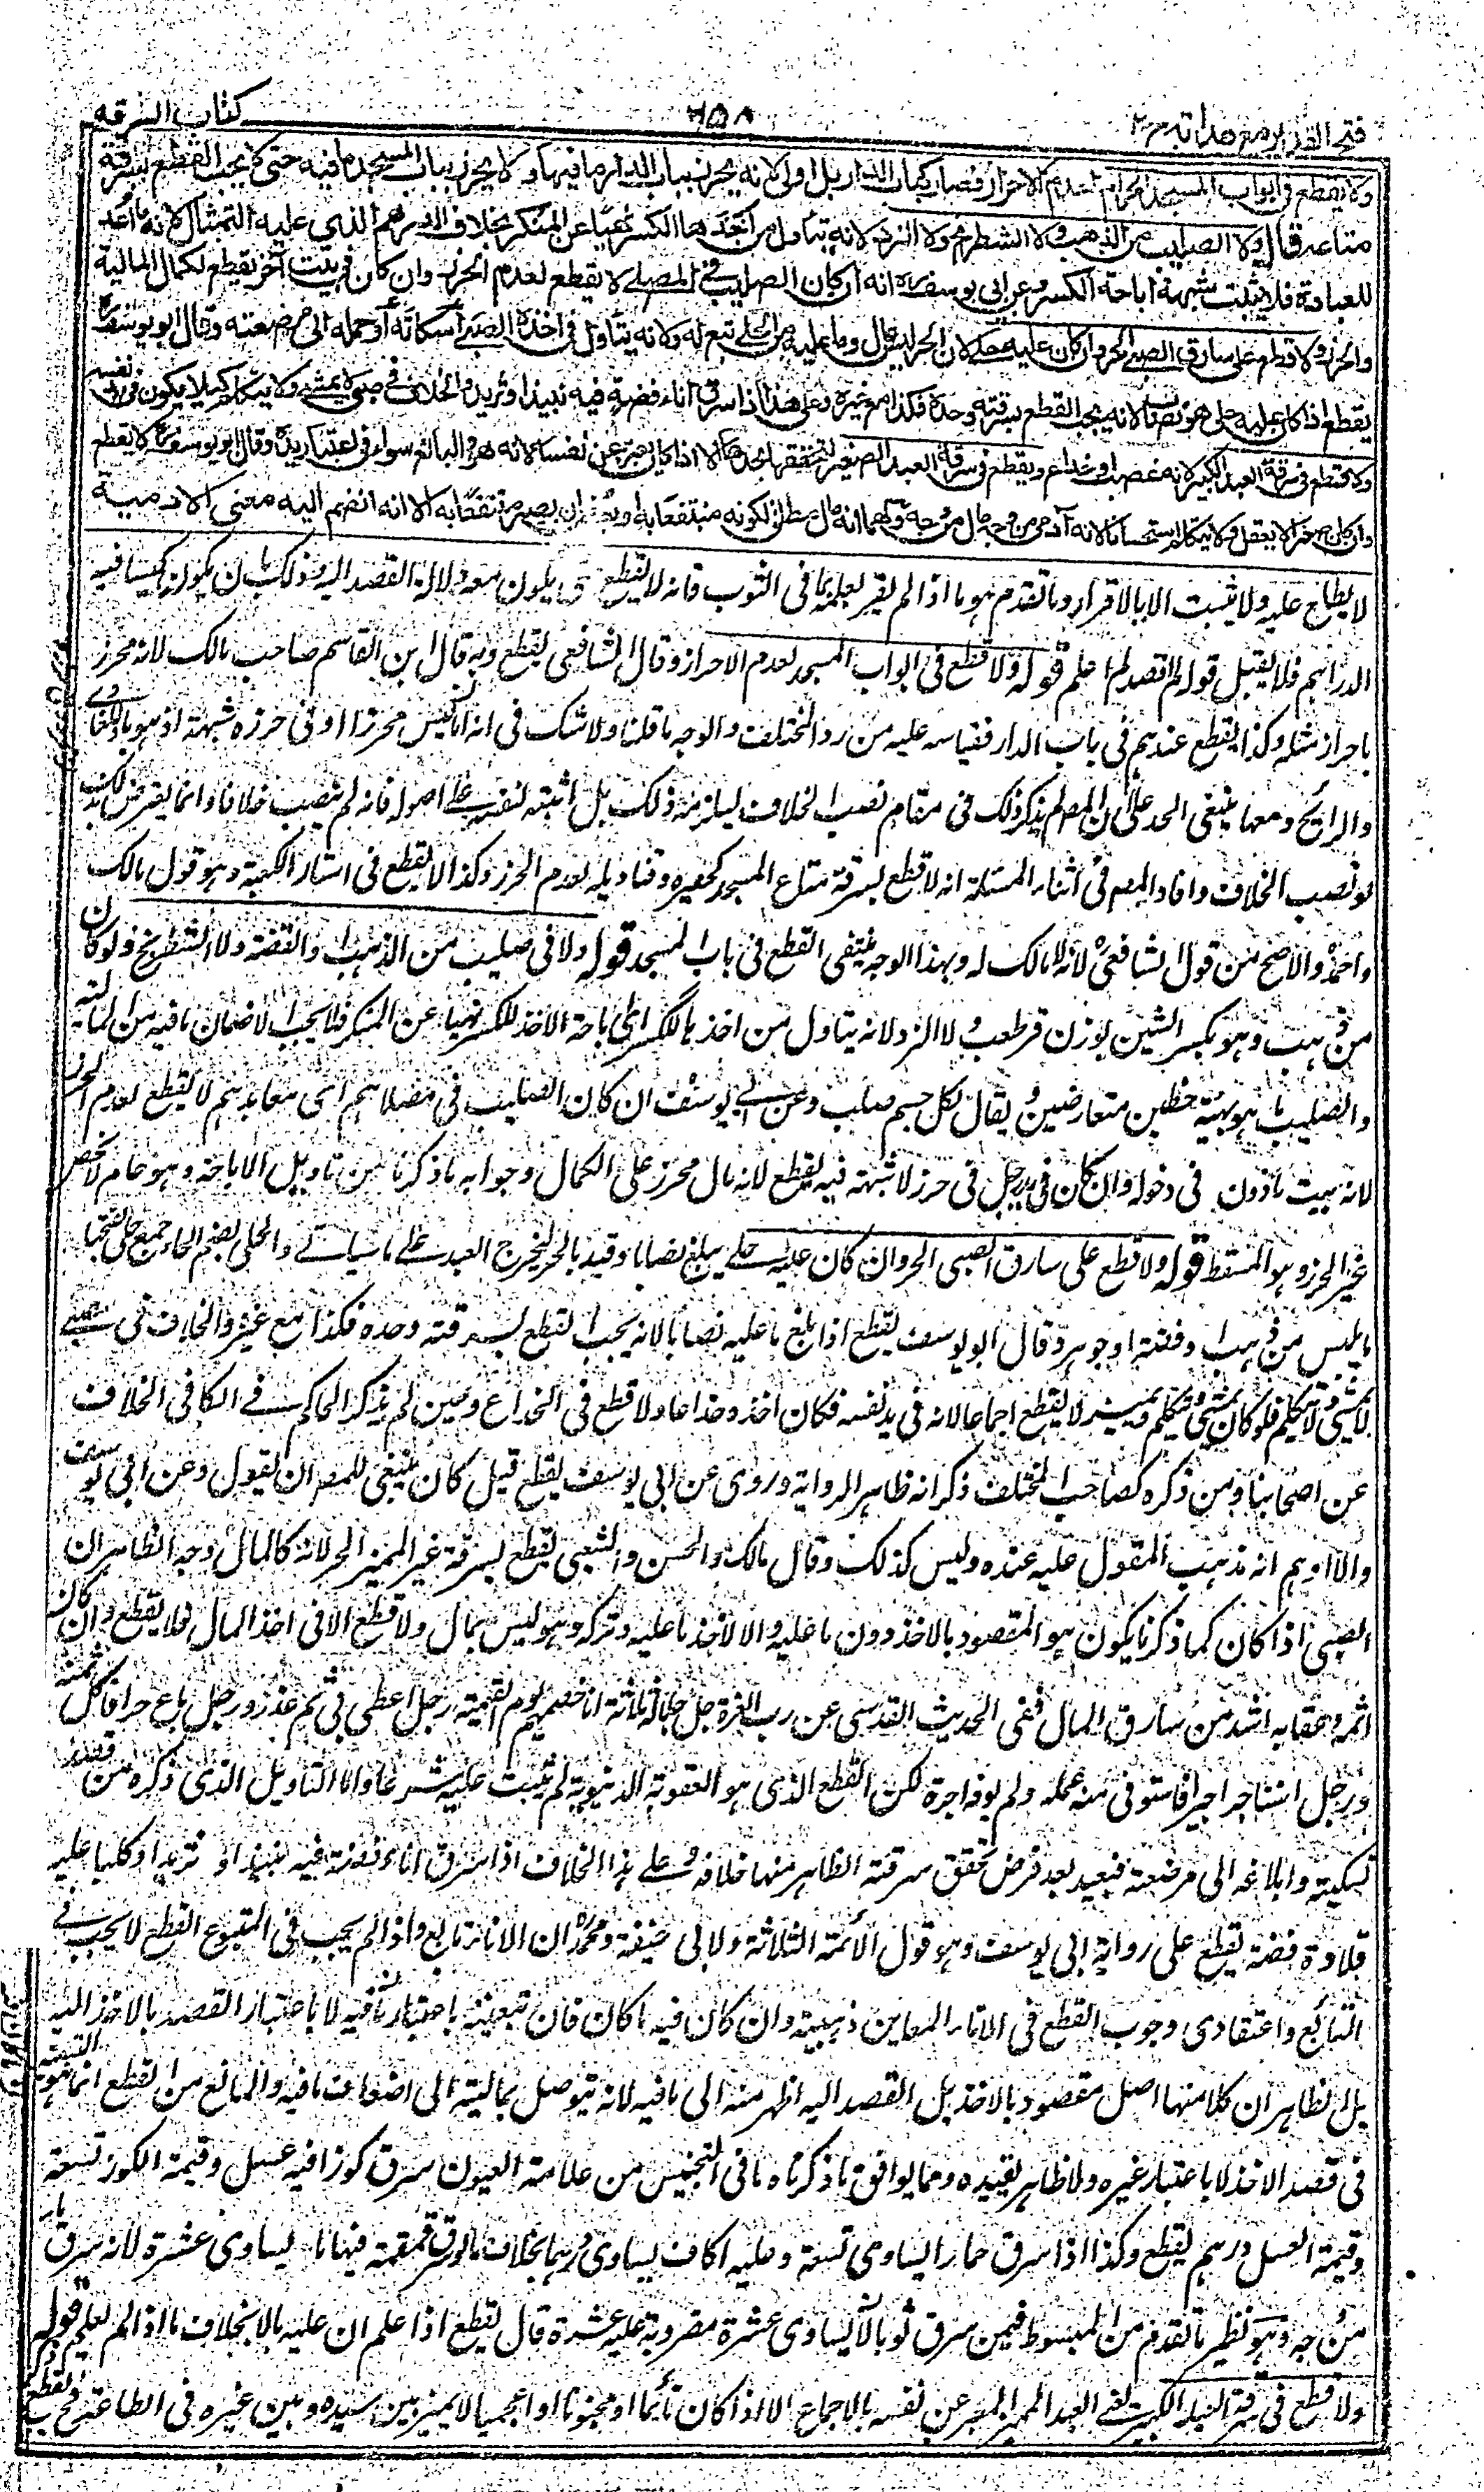 فتح القدير مع هداية ج ٢
٦٥٨
كتاب السرقة
ولا يقطع في ابواب المسجد الحرام لعدم الاحراز فصار كباب الدار بل اولى لانه يحرز بباب الدار ما فيها ولا يحرز بباب المسجد ما فيه حتى لا يجب القطع بسرقة
متاعه قال ولا الصليب من الذهب ولا الشطرنج ولا النرد لانه يتاول من اخذها الكسر نهيا عن المنكر بخلاف الدرهم الذي عليه التمثال لانه ما اعد
للعبادة فلا يثبت شبهة اباحة الكسر وعن ابي يوسف ره انه ان كان الصليب في المصلى لا يقطع لعدم الحرز وان كان في بيت آخر يقطع لكمال المالية
والحرز ولا قطع على سارق الصبي الحر وان كان عليه حلي لان الحر ليس بمال وما عليه من الحلي تبع له ولانه يتاول في اخذه الصبي اسكاته او حمله الى مرضعته وقال ابو يوسف ره
يقطع اذا كان عليه حلي هو نصاب لانه يجب القطع بسرقته وحده فكذا مع غيره وعلى هذا اذا سرق اناء فضة فيه نبيذ او ثريد والخلاف في صبي لا يمشي ولا يتكلم كيلا يكون في يد نفسه
ولا قطع في سرقة العبد الكبير لانه غصب او خداع ويقطع في سرقة العبد الصغير لتحققها بحدها الا اذا كان يعبر عن نفسه لانه هو والبالغ سواء في اعتبار يده وقال ابو يوسف ره لا يقطع
وان كان صغيرا لا يعقل ولا يتكلم استحسانا لانه آدمي من وجه مال من وجه ولهما انه مال مطلق لكونه منتفعا به او بعرض ان يصير منتفعا به الا انه انضم اليه معنى الآدمية
لا يطلع عليه ولا يثبت الا بالاقرار وما تقدم هو ما اذا لم يقر بعلمه بما في الثوب فانه لا يقطع حتى يكون معه دلالة القصد اليه وذلك بان يكون كيسا فيه
الدراهم فلا يقبل قوله لم اقصد لم اعلم قوله ولا قطع في ابواب المسجد لعدم الاحراز وقال الشافعي يقطع وبه قال ابن القاسم صاحب مالك لانه محرز
باحراز مثله وكذا يقطع عندهم في باب الدار فقياسه عليه من رد المختلف والوجه ما قلنا ولا شك في انه اما ليس محرزا او في حرزه شبهة اذ هو باد للغادي
والرائح ومعها ينتفي الحد على ان المص لم يذكر ذلك في مقام نصب الخلاف ليلزمه ذلك بل اثبته لنفسه على اصوله فانه لم ينصب خلافا وانما يفرض ذلك
لو نصب الخلاف وافاد المص في اثناء المسئلة انه لا قطع بسرقة متاع المسجد كحصيره وقناديله لعدم الحرز وكذا لا يقطع في استار الكعبة وهو قول مالك
واحمد والاصح من قول الشافعي لانه لا مالك له وبهذا الوجه ينتفي القطع في باب المسجد قوله ولا في صليب من الذهب والفضة ولا الشطرنج ولو كان
من ذهب وهو بكسر الشين بوزن قرطعب ولا النرد لانه يتاول من اخذها للكسر اي اباحة الاخذ للكسر نهيا عن المنكر فلا يجب الا ضمان ما فيه من المالية
والصليب ما هو بهيئة خطين متعارضين ويقال لكل جسم صلب وعن ابي يوسف ان كان الصليب في مصلاهم اي معابدهم لا يقطع لعدم الحرز
لانه بيت ماذون في دخوله وان كان في يد رجل في حرز لا شبهة فيه يقطع لانه مال محرز على الكمال وجوابه ما ذكرنا من تاويل الاباحة وهو عام لا يخص
غير المحرز وهو المسقط قوله ولا قطع على سارق الصبي الحر وان كان عليه حلي يبلغ نصابا وقيد بالحر ليخرج العبد على ما سياتي والحلي بضم الحاء جمع حلي بفتحها
ما يلبس من ذهب وفضة او جوهر وقال ابو يوسف يقطع اذا بلغ ما عليه نصابا لانه يجب القطع بسرقته وحده فكذا مع غيره والخلاف في صبي
لا يمشي ولا يتكلم فلو كان يمشي ويتكلم ويميز لا يقطع اجماعا لانه في يد نفسه فكان اخذه خداعا ولا قطع في الخداع وحين لم يذكر الحاكم في الكافي الخلاف
عن اصحابنا ومن ذكره كصاحب المختلف ذكر انه ظاهر الرواية وروى عن ابي يوسف يقطع قيل كان ينبغي للمص ان يقول وعن ابي يوسف
والا اوهم انه مذهب المقول عليه عنده وليس كذلك وقال مالك والحسن والشعبي يقطع بسرقة غير المميز الحر لانه كالمال وجه الظاهر ان
الصبي اذا كان كما ذكرنا يكون هو المقصود بالاخذ دون ما عليه والا لاخذ ما عليه وتركه وهو ليس بمال ولا قطع الا في اخذ المال فلا يقطع وان كان
اثمه وعقابه اشد من سارق المال ففي الحديث القدسي عن رب العزة جل جلاله ثلثة انا خصمهم يوم القيمة رجل اعطى بي ثم غدر ورجل باع حرا فاكل ثمنه
ورجل استاجر اجيرا فاستوفى منه عمله ولم يوفه اجره لكن القطع الذي هو العقوبة الدنيوية لم يثبت عليه شرعا واما التاويل الذي ذكره من قصد
تسكيته وابلاغه الى مرضعته فبعيد بعد فرض تحقق سرقته الظاهر منها خلافه وعلى هذا الخلاف اذا سرق اناء فضة فيه نبيذ او ثريد او كلبا عليه
قلادة فضة يقطع على رواية ابي يوسف وهو قول الأئمة الثلاثة ولابي حنيفة ومحمد ره ان الاناء تابع واذا لم يجب في المتبوع القطع لا يجب في
التابع واعتقادي وجوب القطع في الاناء المعاين ذهبيته وان كان فيه ما كان فان تبعيته باعتبار ما فيه لا باعتبار القصد بالاخذ اليه
بل الظاهر ان كلا منهما اصل مقصود بالاخذ بل القصد اليه اظهر منه الى ما فيه لانه يتوصل بماليته الى اضعاف ما فيه والمانع من القطع انما هو التبعية
في قصد الاخذ لا باعتبار غيره ولا ظاهر يفيده ومما يوافق ما ذكرناه ما في التجنيس من علامة العيون سرق كوزا فيه عسل وقيمة الكوز تسعة
وقيمة العسل درهم يقطع وكذا اذا سرق حمارا يساوي تسعة وعليه اكاف يساوي درهما بخلاف ما لو سرق قمقمة فيها ماء يساوي عشرة لانه سرق ماء
من وجه وهو نظير ما تقدم من المبسوط فيمن سرق ثوبا لا يساوي عشرة مصرورة عليه عشرة قال يقطع اذا علم ان عليه مالا بخلاف ما اذا لم يعلم قوله
ولا قطع في سرقة العبد الكبير يعني العبد المميز المعبر عن نفسه بالاجماع الا اذا كان نائما او مجنونا او اعجميا لا يميز بين سيده وبين غيره في الطاعة فح يقطع